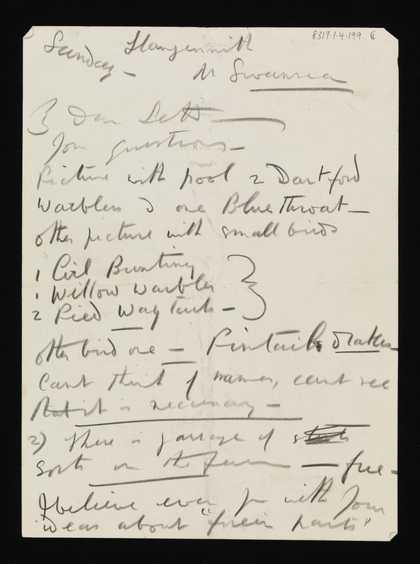 8317.1.4.199
Sunday - Llangennith
Nr Swansea
Dear Lett -
Your questions -
Picture with pool 2 Dartford
Warblers & one Bluethroat -
other picture with small birds
1 Cirl Bunting
1 Willow Warbler
2 Pied Wagtails -
other bird one - Pintail drakes -
Cant think of names, cant see
that it is necessary -
2) There is garage of
sorts on the farm - free -
I believe even
ideas about "foreign parts"